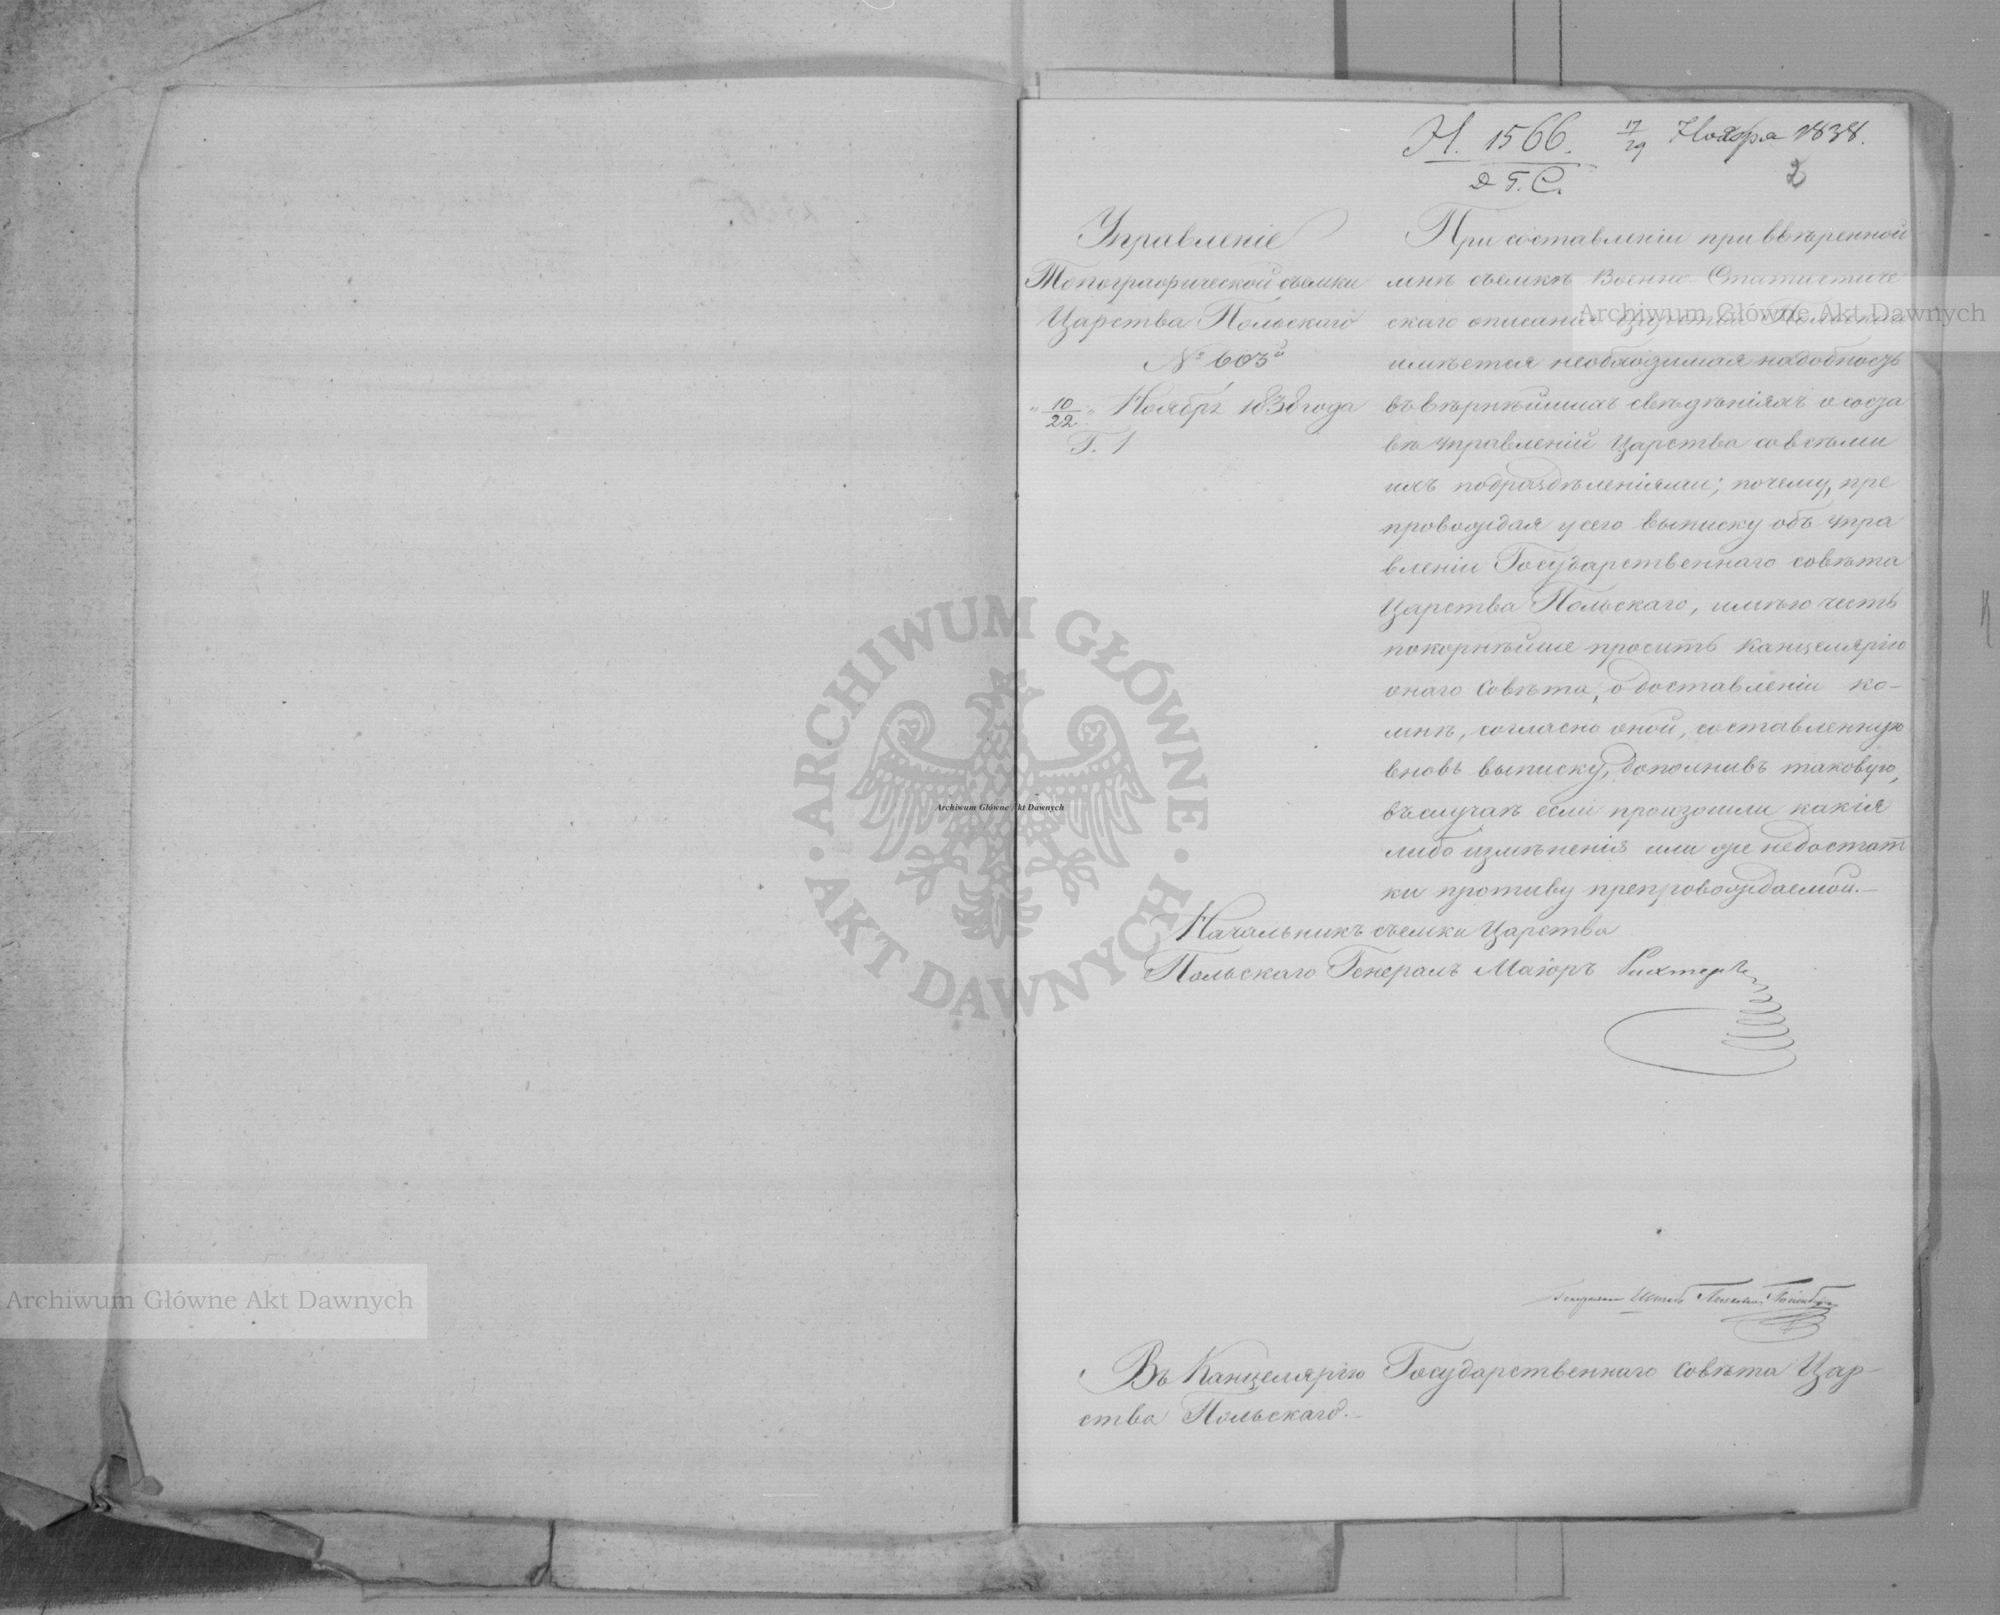 Н. 1566. 17/29 Ноября 1838.
Д Г. С.
2
Управленіе
Топографической съемки
Царства Польскаго
№ 603й
"10/22" Ноября 1838 года
Г. 1
При составленіи при ввѣренной
мнѣ съемкѣ Военно-Статистиче
скаго описанія Царства Польскаго
имѣется необходимая надобность
въ вѣрнѣйшихъ свѣдѣніяхъ о соста
вѣ Управленій Царства со всѣми
ихъ подраздѣленіями; почему, пре
провождая у сего выписку объ упра
вленіи Государственнаго совѣта
Царства Польскаго, имѣю честь
покорнѣйше просить Канцелярію
онаго Совѣта, о доставленіи ко-
мнѣ, согласно оной, составленную
вновь выписку, дополнивъ таковую,
въ случаѣ если произошли какія
либо измѣненія или же недостат
ки противу препровождаемой.—
Начальникъ съемки Царства
Польскаго Генералъ Маіоръ Рихтеръ
Въ Канцелярію Государственнаго совѣта Цар-
ства Польскаго.—
Archiwum Główne Akt Dawnych
Archiwum Główne Akt Dawnych
Archiwum Główne Akt Dawnych
ARCHIWUM GŁÓWNE · AKT DAWNYCH ·